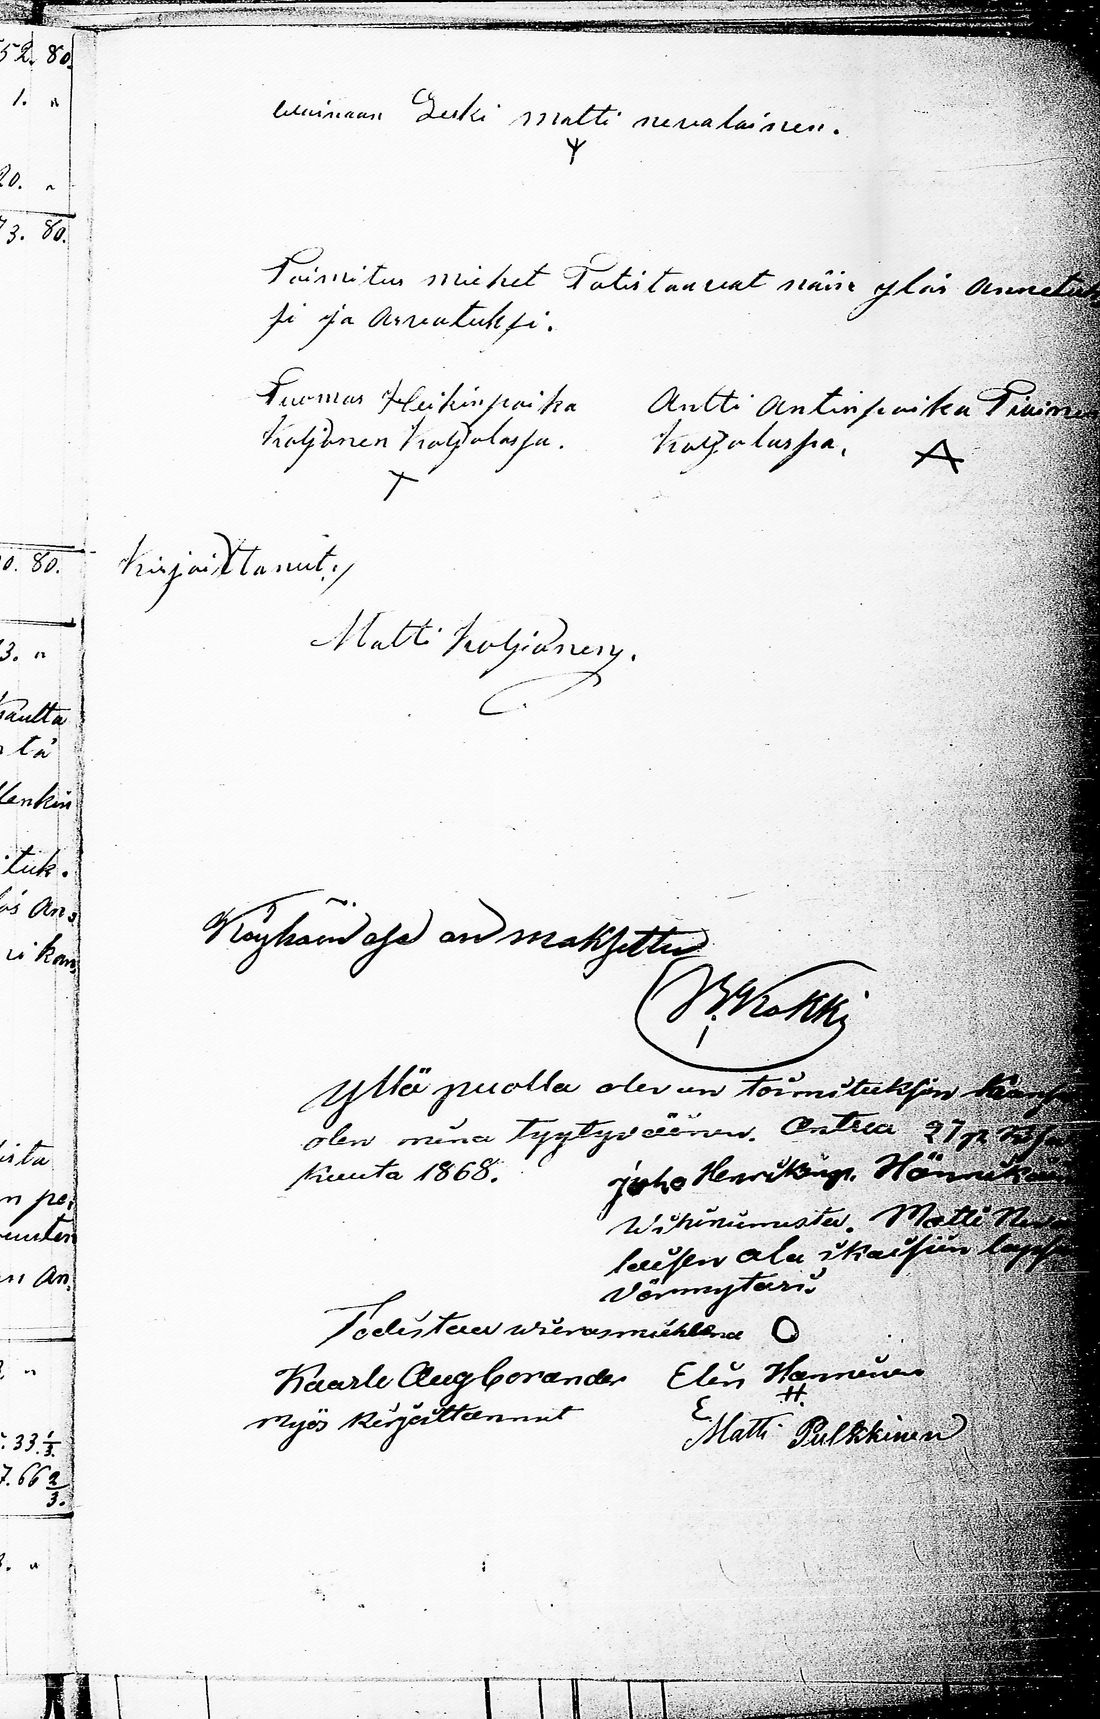 52. 80.
1. "
20. "
73. 80.
0. 80.
3. "
kautta
tä
Henkin
ituk.
ös An=
ri kan
ista
n pe,
uuten
en An,
"
33 1/3.
7. 66 2/3.
3. "
wainaan Leski matti nevalainen.
Toimitus miehet Totistaavat näin ylös Annetuk
si ja Arvatuksi.
Tuomas Heikinpoika
Koljonen Koljolassa.
Antti Antinpoika Tiainen
Koljolassa.
Kirjoittanut;
Matti Koljonen.
Köyhäin osa on maksettu
Kokki
Yllä puolla olevan toimituksen kansa
olen minä tyytyväinen. Antrea 27 p
kuuta 1868.
Juho Henrikinp. Hännikäi
Matti Neva
laisen ala ikäisiin lapsi
Vörmytäri
Todistaa wierasmiehenä O
Kaarle Aug Corander
myös kirjoittannut
Elin Hanninen
H
E
Matti Pulkkinen